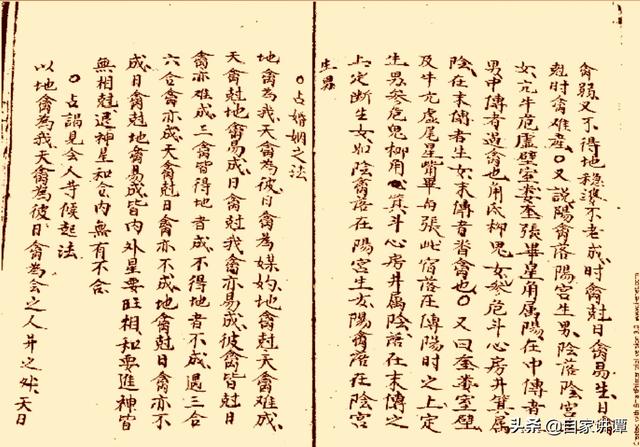 禽弱又不得地穏準不老成时禽尅日禽易生日禽
尅时禽难產〇又說陽禽落陽宫生男陰落陰宫
女亢牛危虛壁室娄奎張畢星角属陽在中傳者
男中傳者過禽也角氐柳鬼女參危斗心房井箕属
陰在末傳者生女末傳者皆禽也〇又曰奎娄室壁
及牛亢虛尾星觜畢与張此宿落在傳陽时之上定
生男參危鬼柳角箕斗心房井属陰落在末傳之
上定断生女則陰禽落在陽宫生女陽禽落在陰宫
生男
〇占婚姻之法
地禽為我天禽為彼日禽為媒妁地禽尅天禽难成
天禽尅地禽易成日禽尅我禽亦易成彼禽皆尅日
禽亦难成三禽皆得地者成不得地者不成遇三合
六合禽亦成天禽尅日禽亦不成地禽尅日禽亦不
成日禽尅地禽易成皆内外星要旺相和要進神皆
無相尅退神星和合内無有不合
〇占謁見会人等候起法
以地禽為我天禽為彼日禽為会之人井之类天日
头条 @自家讲谭